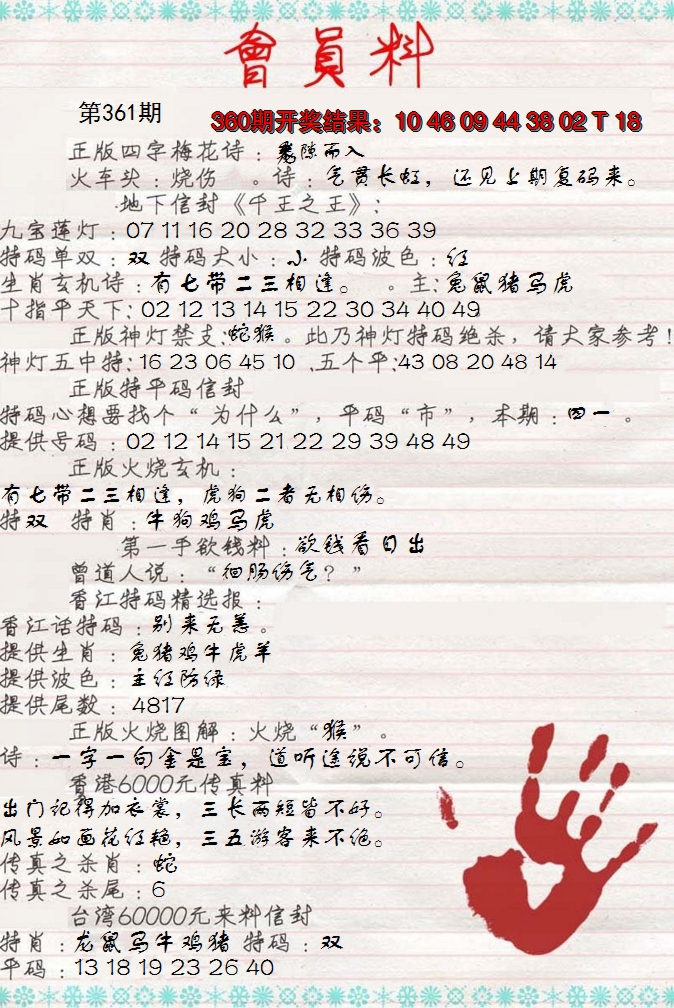 會員料
第361期
360期开奖结果：10 46 09 44 38 02 T 18
正版四字梅花诗：乘隙而入
火车头：烧伤 。诗：气贯长虹，还见上期复码来。
地下信封《千王之王》：
九宝莲灯：07 11 16 20 28 32 33 36 39
特码单双：双 特码大小：小 特码波色：红
生肖玄机诗：有七带二三相逢。 。主:兔鼠猪马虎
十指平天下: 02 12 13 14 15 22 30 34 40 49
正版神灯禁支:蛇猴。此乃神灯特码绝杀，请大家参考!
神灯五中特:16 23 06 45 10 .五个平:43 08 20 48 14
正版特平码信封
特码心想要找个“为什么”，平码“市”，本期：四一 。
提供号码：02 12 14 15 21 22 29 39 48 49
正版火烧玄机：
有七带二三相逢，虎狗二者无相伤。
特双 特肖：牛狗鸡马虎
第一手欲钱料：欲钱看日出
曾道人说：“徊肠伤气？”
香江特码精选报：
香江话特码：别来无恙。
提供生肖：兔猪鸡牛虎羊
提供波色：主红防绿
提供尾数：4817
正版火烧图解：火烧“猴”。
诗：一字一句金是宝，道听途说不可信。
香港6000元传真料
出门记得加衣裳，三长两短皆不好。
风景如画花红艳，三五游客来不绝。
传真之杀肖：蛇
传真之杀尾：6
台湾60000元来料信封
特肖：龙鼠马牛鸡猪 特码：双
平码：13 18 19 23 26 40